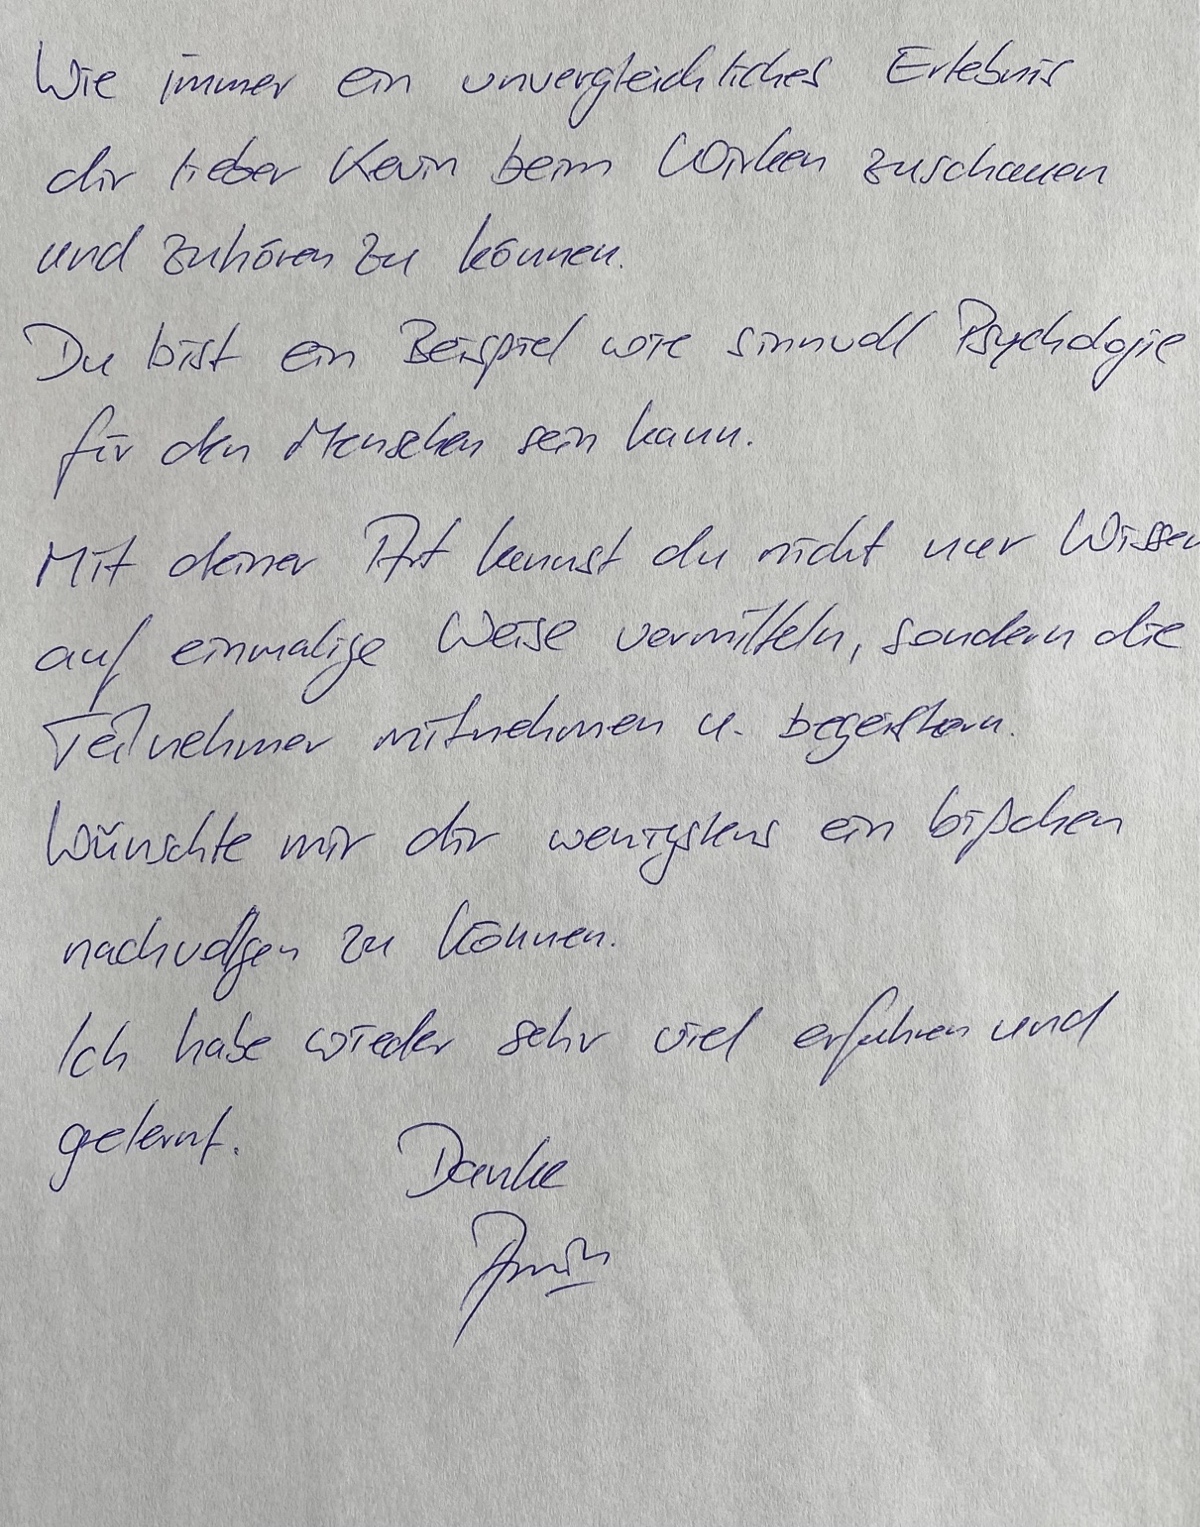 Wie immer ein unvergleichliches Erlebnis
dir lieber Kevin beim Wirken zuschauen
und zuhören zu können.
Du bist ein Beispiel wie sinnvoll Psychologie
für den Menschen sein kann.
Mit deiner Art kannst du nicht nur Wissen
auf einmalige Weise vermitteln, sondern die
Teilnehmer mitnehmen u. begeistern.
Wünschte mir dir wenigstens ein bißchen
zu können.
Ich habe wieder sehr viel erfahren und
gelernt.
Danke